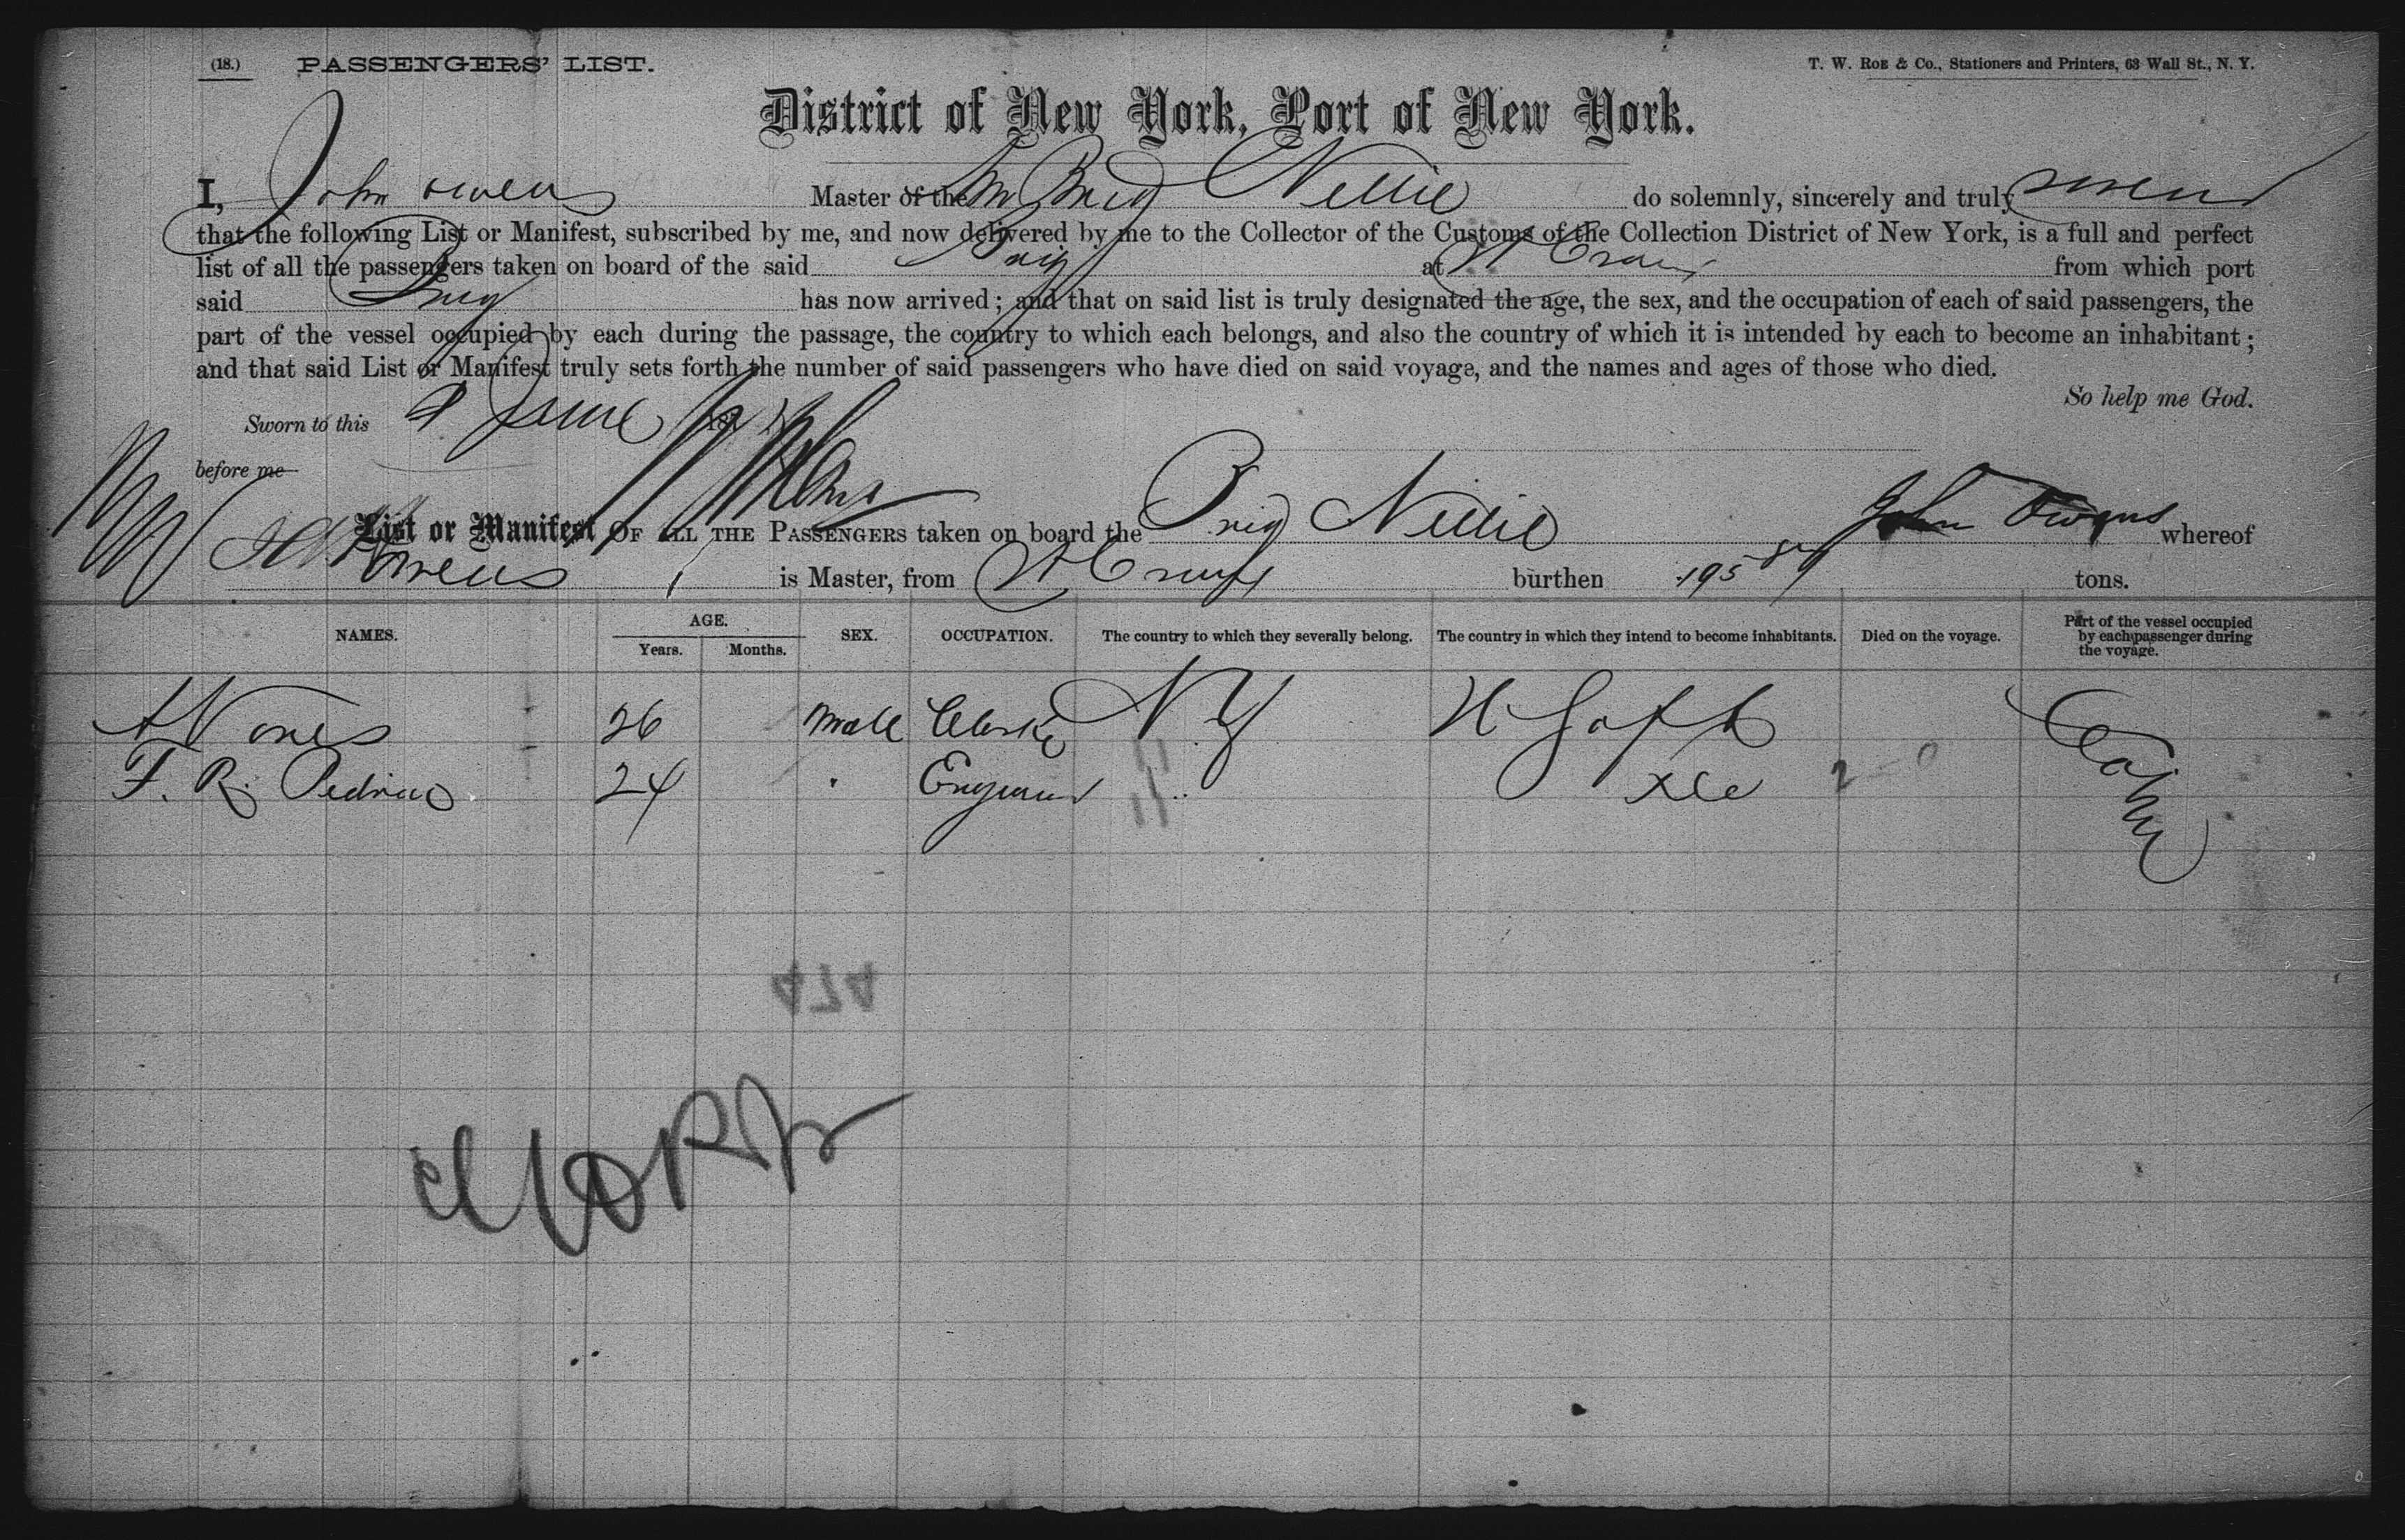 (18.) PASSENGERS' LIST.
T. W. ROE & Co., Stationers and Printers, 63 Wall St., N. Y.
District of New York, Port of New York.
I, John Owens Master of the Am Brig Nellie do solemnly, sincerely and truly swear
that the following List or Manifest, subscribed by me, and now delivered by me to the Collector of the Customs of the Collection District of New York, is a full and perfect
list of all the passengers taken on board of the said Brig at St Croix from which port
said Brig has now arrived; and that on said list is truly designated the age, the sex, and the occupation of each of said passengers, the
part of the vessel occupied by each during the passage, the country to which each belongs, and also the country of which it is intended by each to become an inhabitant;
and that said List or Manifest truly sets forth the number of said passengers who have died on said voyage, and the names and ages of those who died.
So help me God.
Sworn to this 9 June 188
before me
List or Manifest OF ALL THE PASSENGERS taken on board the Brig Nellie John Owens whereof
Owens is Master, from St Croix burthen 195 tons.
NAMES. AGE. Years. Months. SEX. OCCUPATION. The country to which they severally belong. The country in which they intend to become inhabitants. Died on the voyage. Part of the vessel occupied by each passenger during the voyage.
A Nones 26 Male Clerk N Y Cabin
F. R. 24 " Engineer
474